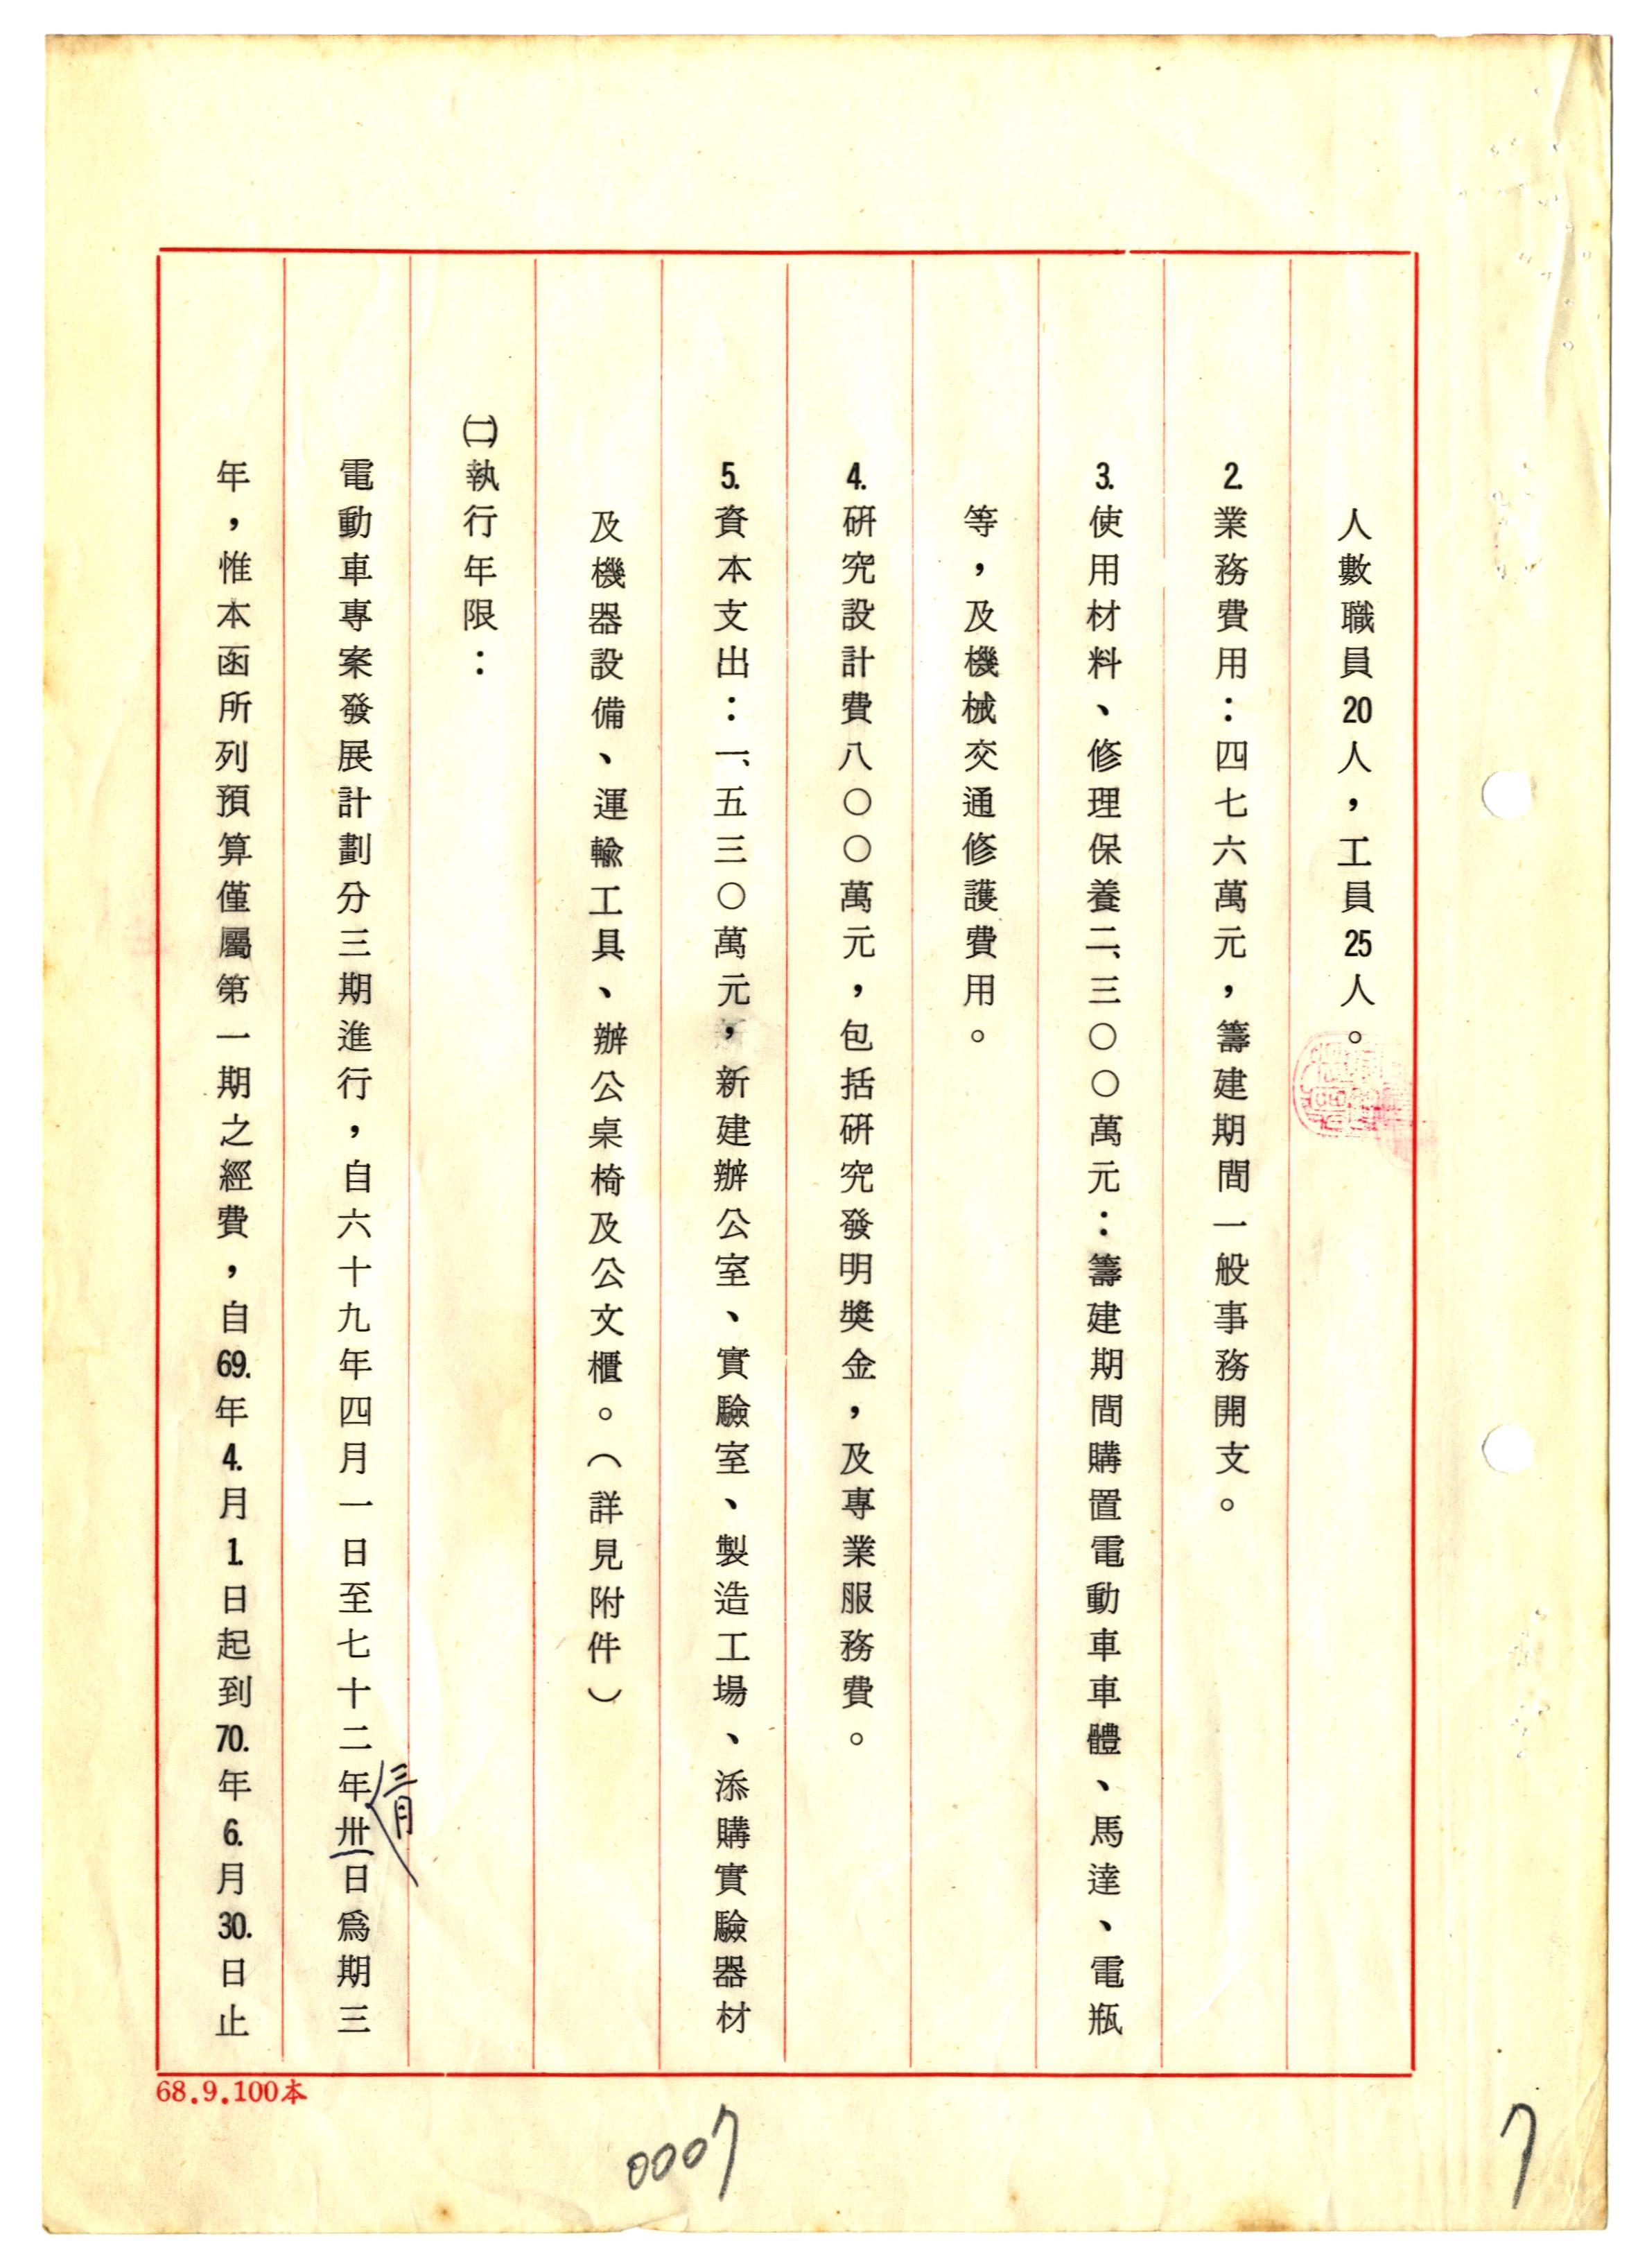 人數職員20人，工員25人。
2.業務費用：四七六萬元，籌建期間一般事務開支。
3.使用材料、修理保養二、三〇〇萬元：籌建期間購置電動車車體、馬達、電瓶
等，及機械交通修護費用。
4.研究設計費八〇〇萬元，包括研究發明獎金，及專業服務費。
5.資本支出：一、五三〇萬元，新建辦公室、實驗室、製造工場、添購實驗器材
及機器設備、運輸工具、辦公桌椅及公文櫃。（詳見附件）
㈡執行年限：
電動車專案發展計劃分三期進行，自六十九年四月一日至七十二年三月卅一日為期三
年，惟本函所列預算僅屬第一期之經費，自69.年4.月1.日起到70.年6.月30.日止
68.9.100本
0007
7